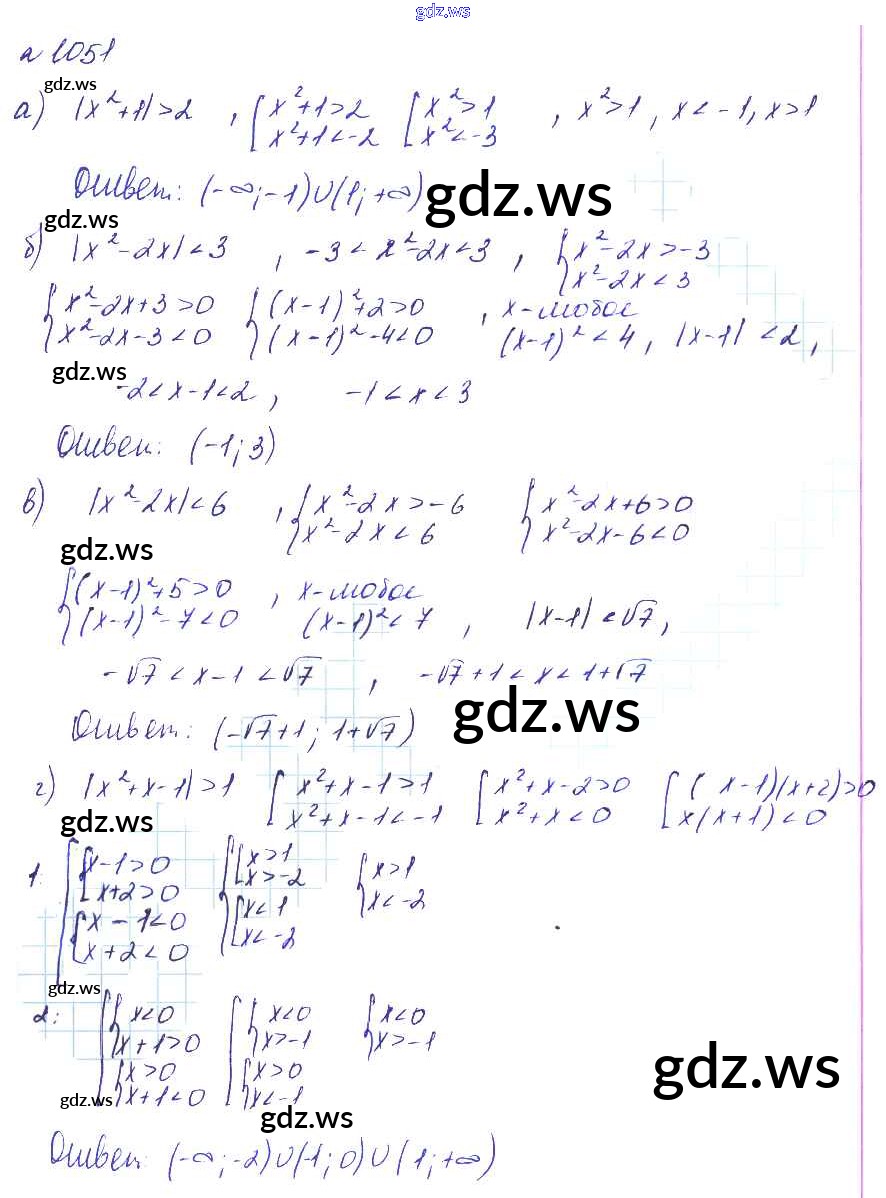 gdz.ws
а 1051
gdz.ws
а) |x²+1|>2 , [x²+1>2 [x²>1 , x²>1, x<-1, x>1
x²+1<-2 x²<-3
Ответ: (-∞;-1)∪(1;+∞) gdz.ws
gdz.ws
б) |x²-2x|<3 , -3<x²-2x<3 , {x²-2x>-3
x²-2x<3
{x²-2x+3>0 {(x-1)²+2>0 , x-любое
x²-2x-3<0 (x-1)²-4<0 (x-1)²<4, |x-1|<2,
gdz.ws
-2<x-1<2, -1<x<3
Ответ: (-1;3)
в) |x²-2x|<6 , {x²-2x>-6 {x²-2x+6>0
x²-2x<6 x²-2x-6<0
gdz.ws
{(x-1)²+5>0 , x-любое
(x-1)²-7<0 (x-1)²<7 , |x-1|<√7,
-√7<x-1<√7 , -√7+1<x<1+√7
gdz.ws
Ответ: (-√7+1; 1+√7)
г) |x²+x-1|>1 [x²+x-1>1 [x²+x-2>0 [(x-1)(x+2)>0
x²+x-1<-1 x²+x<0 x(x+1)<0
gdz.ws
1. [{x-1>0 {[x>1 {x>1
x+2>0 x>-2 x<-2
{x-1<0 [x<1
x+2<0 x<-2
gdz.ws
2: [{x<0 [{x<0 {x<0
x+1>0 x>-1 x>-1
{x>0 {x>0
x+1<0 x<-1
gdz.ws
gdz.ws
gdz.ws
Ответ: (-∞;-2)∪(-1;0)∪(1;+∞)